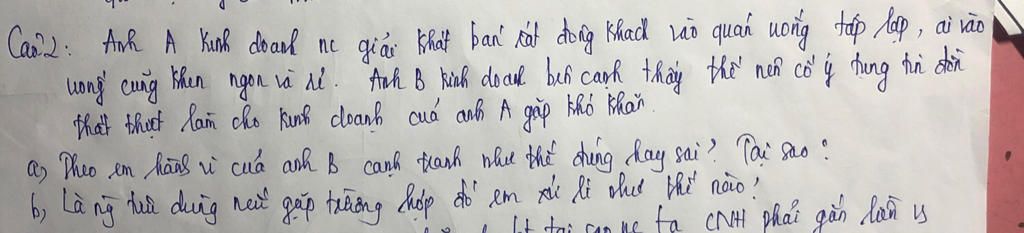 Câu 2: Anh A kinh doanh nc giải khát bán rất đông khách vào quán uống tấp lập, ai vào
uống cũng khen ngon và rẻ. Anh B kinh doanh bên cạnh thấy thế nên cố ý tung tin đồn
thất thiệt làm cho kinh doanh của anh A gặp khó khăn.
a, Theo em hành vi của anh B cạnh tranh như thế đúng hay sai? Tại sao?
b, Là ng tiêu dùng nếu gặp trường hợp đó em xử lí như thế nào?
tại sao nc ta CNH phải gắn liền vs